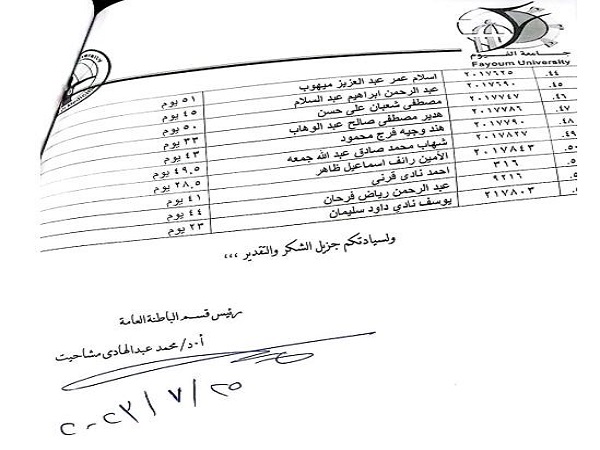 جامعة الفيوم
Fayoum University
٤٤. ٢٠١٧٦٢٥ اسلام عمر عبد العزيز ميهوب ٥١ يوم
٤٥. ٢٠١٧٦٩٠ عبد الرحمن ابراهيم عبد السلام ٤٥ يوم
٤٦. ٢٠١٧٧٤٧ مصطفى شعبان على حسن ٥٠ يوم
٤٧. ٢٠١٧٧٨٦ هدير مصطفى صالح عبد الوهاب ٣٣ يوم
٤٨. ٢٠١٧٧٩٠ هند وجيه فرج محمود ٤٣ يوم
٤٩. ٢٠١٧٨٢٧ شهاب محمد صادق عبد الله جمعه ٤٩.٥ يوم
٥٠. ٢٠١٧٨٤٣ الأمين رانف اسماعيل ظاهر ٢٨.٥ يوم
٣١٦ احمد نادى قرني ٤١ يوم
٩٢١٦ عبد الرحمن رياض فرحان ٤٤ يوم
٢١٧٨٠٣ يوسف نادي داود سليمان ٢٣ يوم
ولسيادتكم جزيل الشكر والتقدير ،،،
رئيس قسم الباطنة العامة
أ.د/ محمد عبدالهادى مشاحيت
٢٠٢٣/٧/٢٥